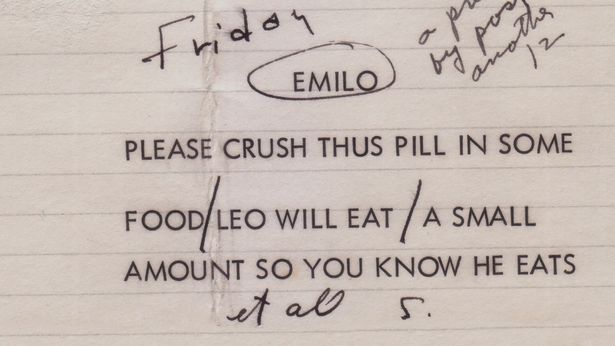 Friday
a
by
another
12
EMILO
PLEASE CRUSH THUS PILL IN SOME
FOOD/LEO WILL EAT/A SMALL
AMOUNT SO YOU KNOW HE EATS
it all 5.